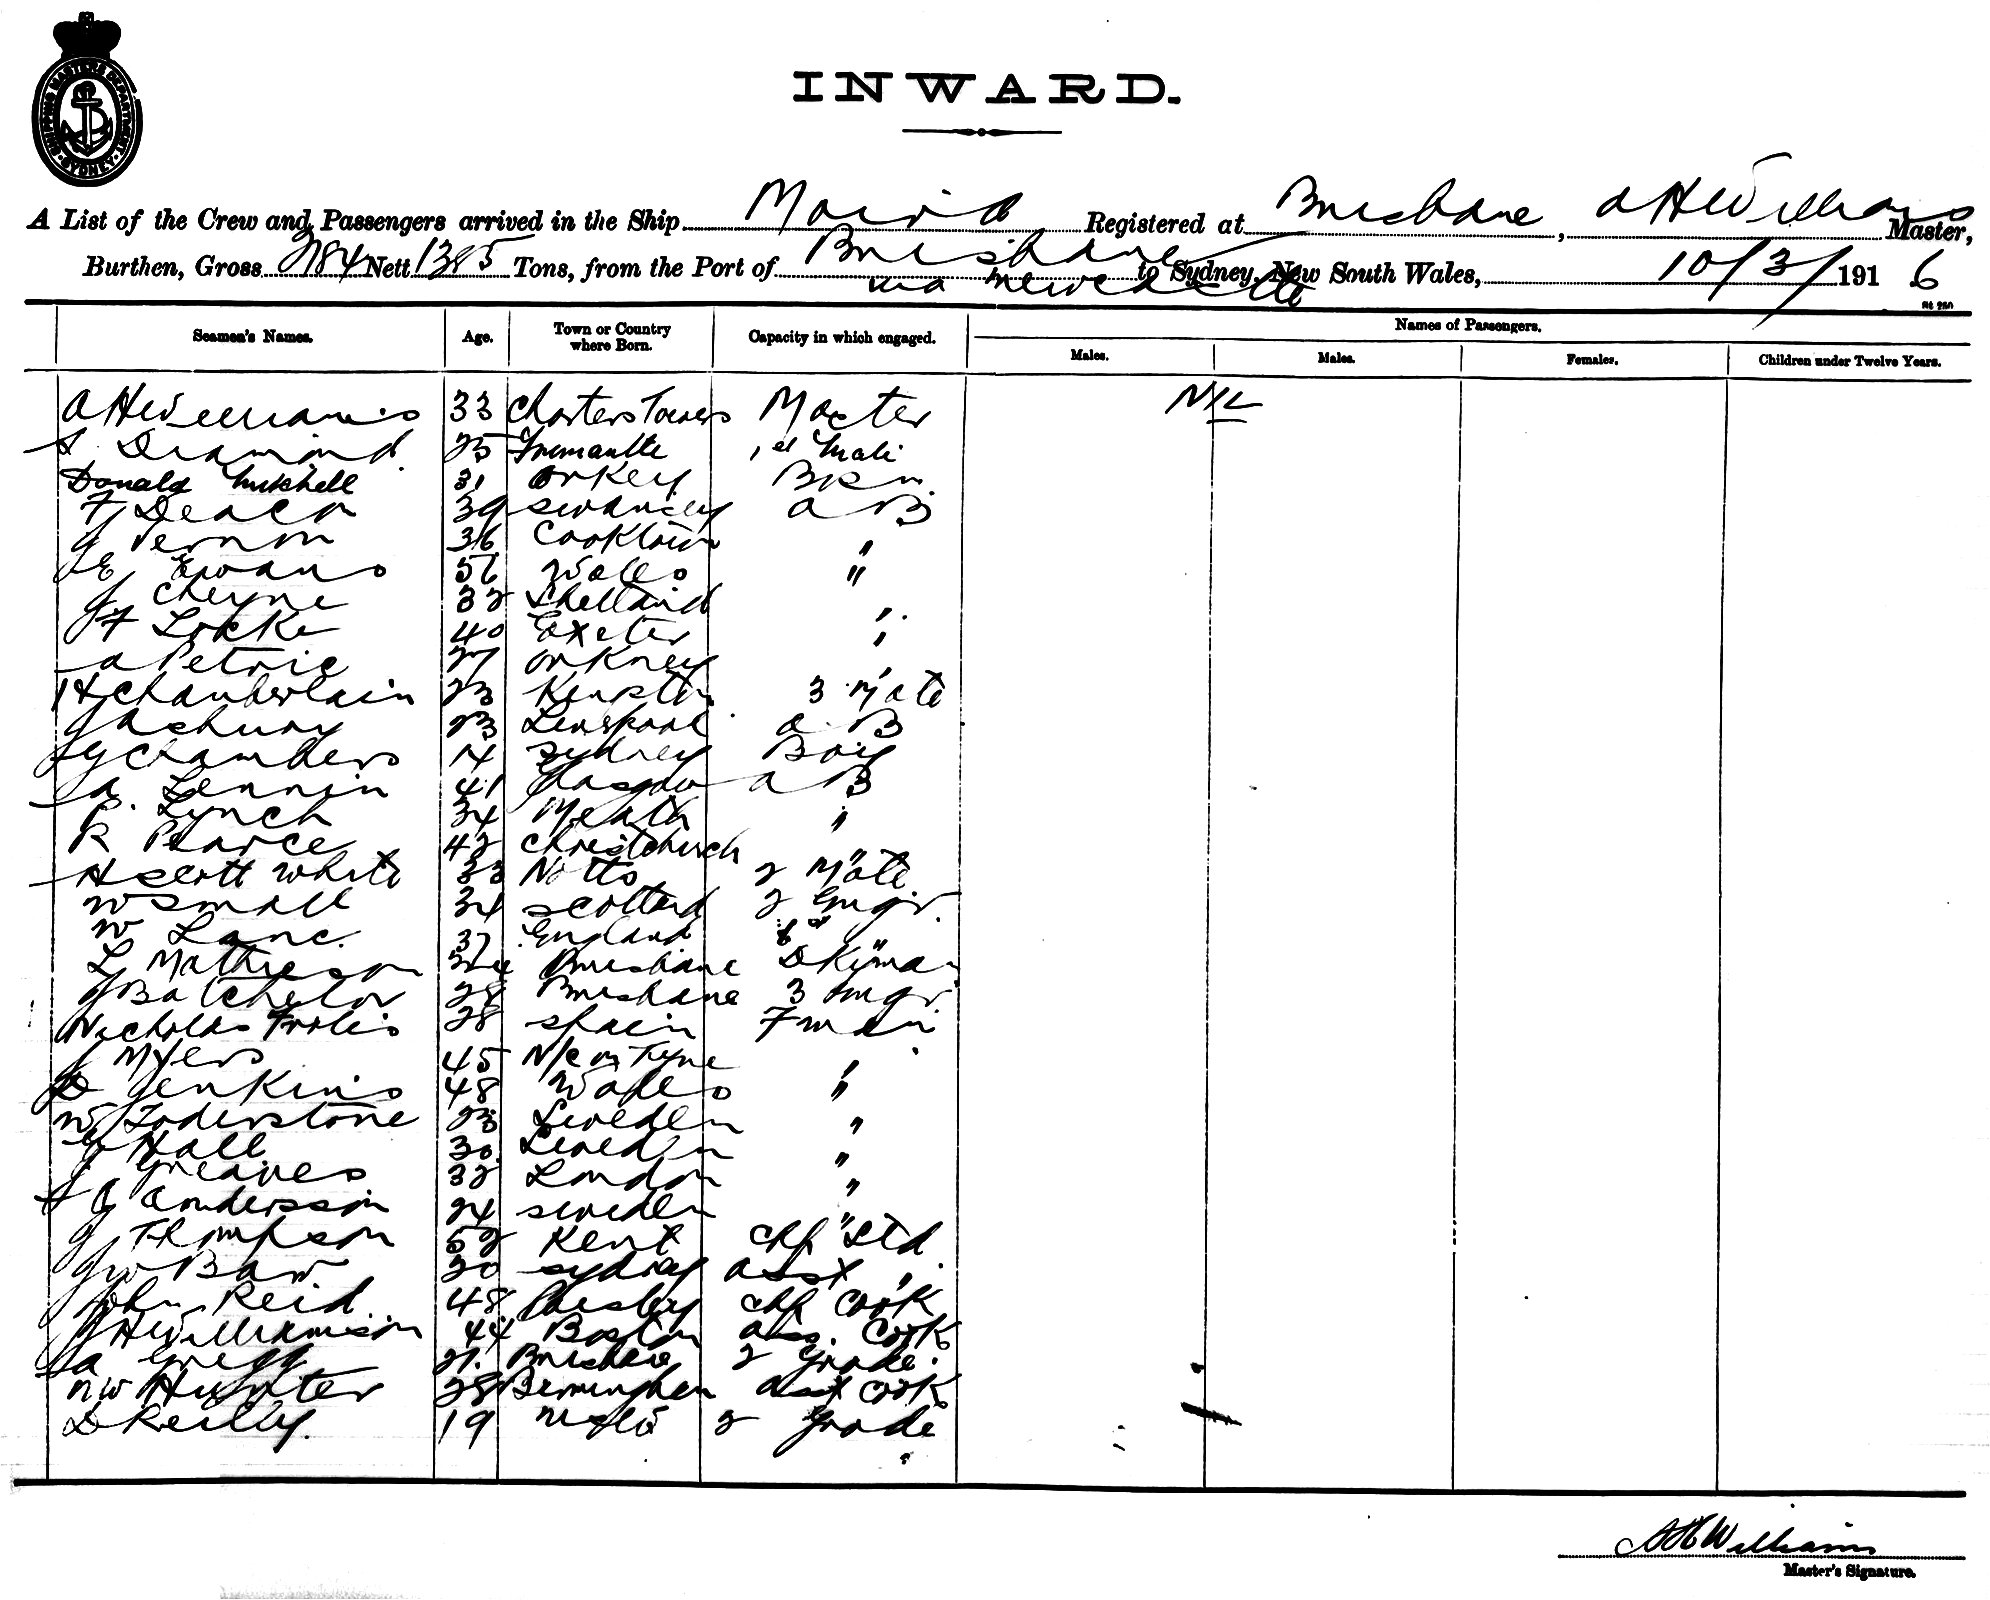 SHIPPING MASTERS DEPARTMENT · SYDNEY ·
INWARD.
A List of the Crew and Passengers arrived in the Ship Registered at Brisbane, A H Williams Master,
Burthen, Gross Nett 1385 Tons, from the Port of Brisbane via Newcastle to Sydney, New South Wales, 10/3/1916
Seamen's Names. Age. Town or Country where Born. Capacity in which engaged. Names of Passengers.
Males. Males. Females. Children under Twelve Years.
A H Williams 33 Charters Towers Master NIL
Diamond 25 Fremantle 1st Mate
Donald Mitchell 31 Orkey Bsn.
F Deacon 39 Swansey A B
J Vernon 36 Cooktown "
E Evans 56 Wales "
J Cheyne 32 Shetland "
J F Locke 40 Exeter "
A Petrie 27 Orkney "
H Chamberlain 23 3 Mate
J Asbury 23 Liverpool A B
G Chambers 14 Sydney Boy
A Lennin 41 Glasgow A B
P. Lynch 34 Meath "
R Pearce 42 Christchurch "
H Scott White 33 Notts 2 Mate
W Small 34 Scotland 2 Engr.
W Lane 37 England
L Mathieson 24 Brisbane Dkyman
J Batchelor 28 Brisbane 3 Engr.
Nicholas 28 Spain Fman
J Myers 45 N/c on Tyne "
D Jenkins 48 Wales "
W Soderstone 23 Sweden "
Hall 30 Sweden "
J Greaves 32 London "
J Andersson 24 Sweden "
J Thompson 52 Kent Chf Std.
J W Baw 20 Sydney Asst "
John Reid 48 Paisley Chf Cook
J H Williamson 44 Boston Ass. Cook
A Gregg 21. Brisbane 2 Grade.
N W Hunter 28 Birmingham Asst Cook
D Reilly. 19 2 Grade
A H Williams
Master's Signature.